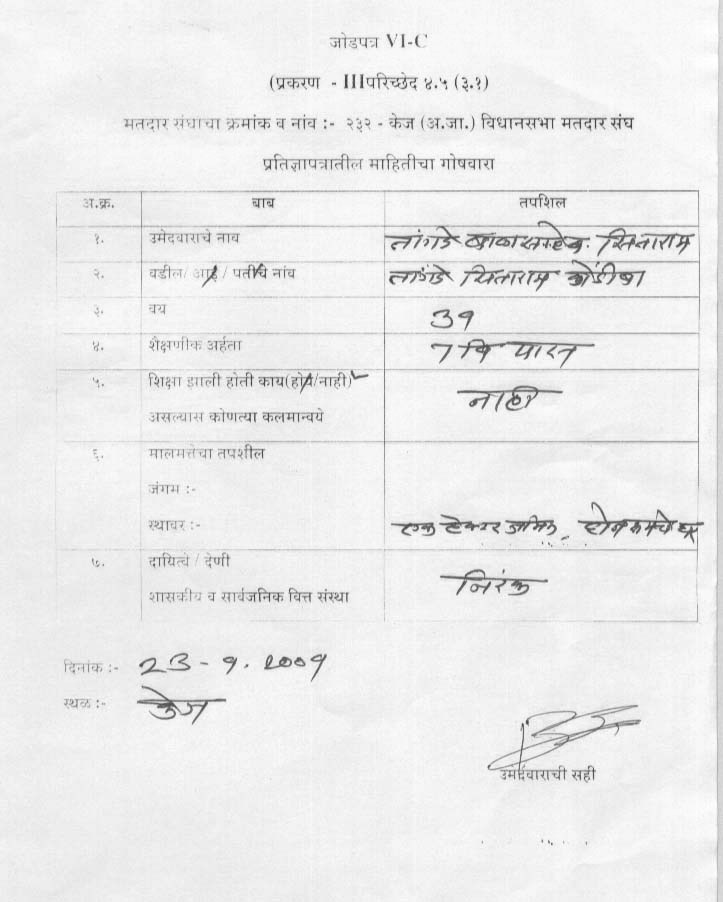 जोडपत्र VI-C
(प्रकरण - IIIपरिच्छेद ४.५ (३.१)
मतदार संघाचा क्रमांक व नांव :- २३२ - केज (अ.जा.) विधानसभा मतदार संघ
प्रतिज्ञापत्रातील माहितीचा गोषवारा
अ.क्र. बाब तपशिल
१. उमेदवाराचे नाव लांडगे बाळासाहेब सिताराम
२. वडील/ आई / पतीचे नांव सिताराम कोंडीबा
३. वय 39
४. शैक्षणीक अर्हता 7 वि पास
५. शिक्षा झाली होती काय(होय/नाही)
नाही
असल्यास कोणत्या कलमान्वये
६. मालमत्तेचा तपशील
जंगम :-
स्थावर :- एक हेक्टर जमिन, दोन रुमचे घर
७. दायित्वे / देणी
निरंक
शासकीय व सार्वजनिक वित्त संस्था
दिनांक :- 23 - 9. 2009
स्थळ :- केज
उमेदवाराची सही